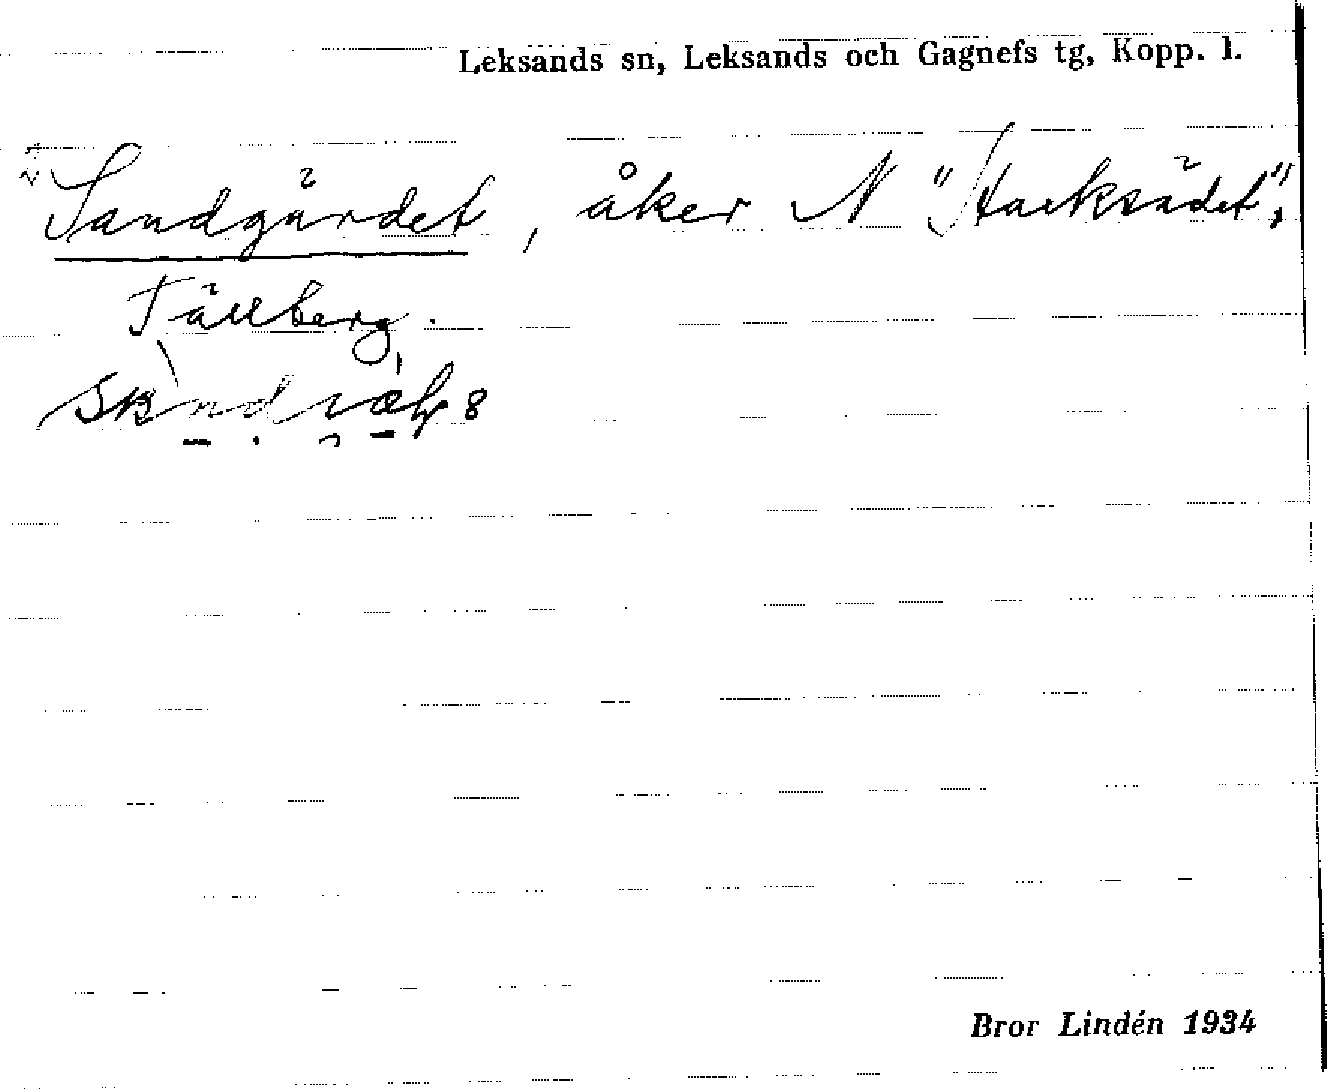 Leksands sn, Leksands och Gagnefs tg, Kopp. l.
Sandgärdet, åker N "Stacksädet",
Tällberg.
Bror Lindén 1934